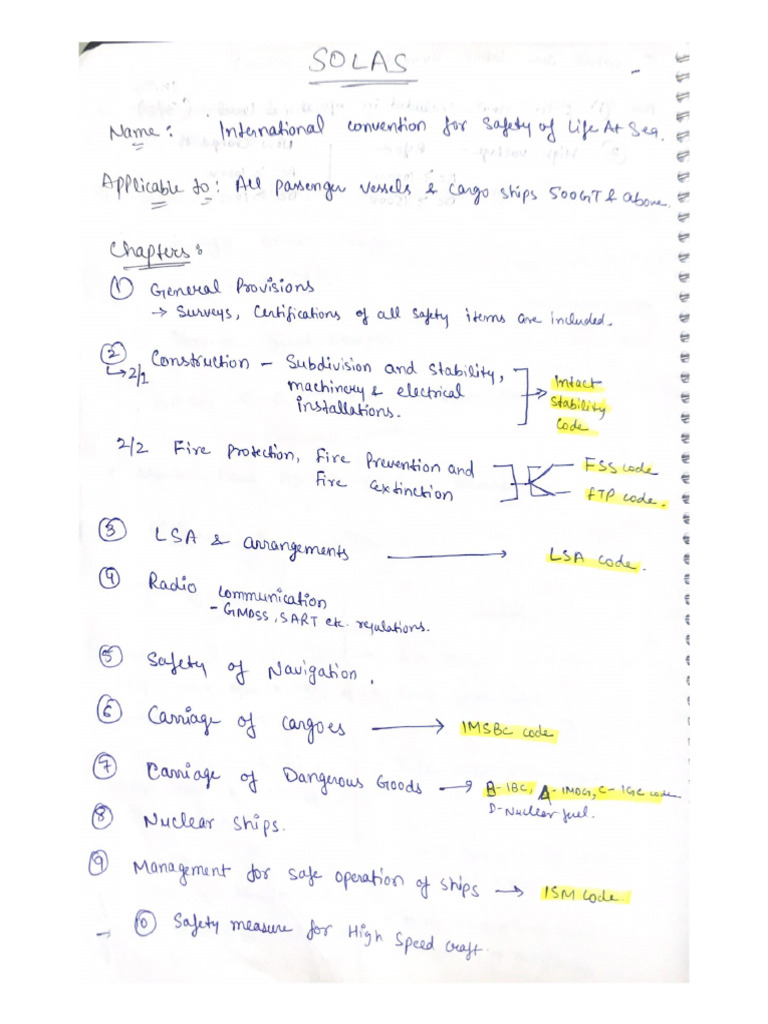 SOLAS
Name: International convention for Safety of Life At Sea.
Applicable to: All passenger vessels & cargo ships 500GT & above.
Chapters:
① General Provisions
→ Surveys, Certifications of all safety items are included.
② Construction – Subdivision and stability,
↳ 2/1 machinery & electrical
installations.
Intact
Stability
Code
2/2 Fire protection, Fire Prevention and
Fire extinction
FSS code
FTP code.
③ LSA & arrangements → LSA code.
④ Radio communication
- GMDSS, SART etc. regulations.
⑤ Safety of Navigation.
⑥ Carriage of cargoes → IMSBC code
⑦ Carriage of Dangerous Goods → B-IBC, A-IMDG, C-IGC code
D-Nuclear fuel.
⑧ Nuclear ships.
⑨ Management for safe operation of ships → ISM code.
→ ⑩ Safety measure for High Speed craft.